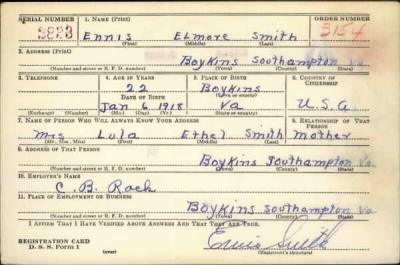 SERIAL NUMBER 1. NAME (Print) ORDER NUMBER
Ennis Elmore Smith 3154
(First) (Middle) (Last)
2. ADDRESS (Print)
Boykins Southampton Va
(Number and street or R. F. D. number) (Town) (County) (State)
3. TELEPHONE 4. AGE IN YEARS 5. PLACE OF BIRTH 6. COUNTRY OF CITIZENSHIP
22 Boykins
DATE OF BIRTH (Town or county)
Jan 6 1918 Va U.S.A.
(Exchange) (Number) (Mo.) (Day) (Yr.) (State or country)
7. NAME OF PERSON WHO WILL ALWAYS KNOW YOUR ADDRESS 8. RELATIONSHIP OF THAT PERSON
Mrs Lula Ethel Smith Mother
(Mr., Mrs., Miss) (First) (Middle) (Last)
9. ADDRESS OF THAT PERSON
Boykins Southampton Va
(Number and street or R. F. D. number) (Town) (County) (State)
10. EMPLOYER'S NAME
C. B. Rock
11. PLACE OF EMPLOYMENT OR BUSINESS
Boykins Southampton Va
(Number and street or R. F. D. number) (Town) (County) (State)
I AFFIRM THAT I HAVE VERIFIED ABOVE ANSWERS AND THAT THEY ARE TRUE.
REGISTRATION CARD
D. S. S. Form 1 (over) Ennis Smith